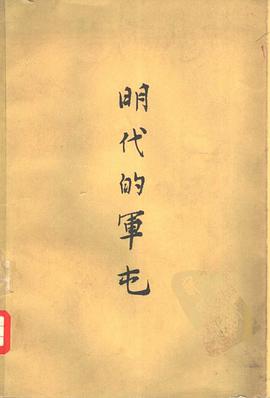 明代的軍屯